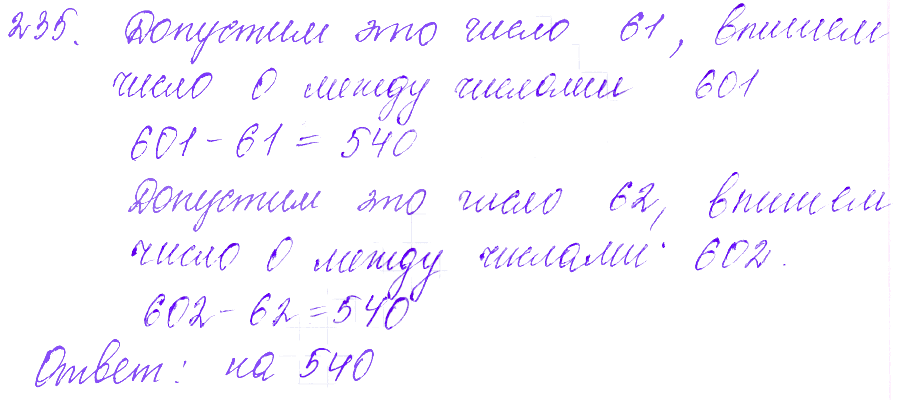 235. Допустим это число 61, впишем
число 0 между числами 601
601 - 61 = 540
Допустим это число 62, впишем
число 0 между числами 602.
602 - 62 = 540
Ответ: на 540